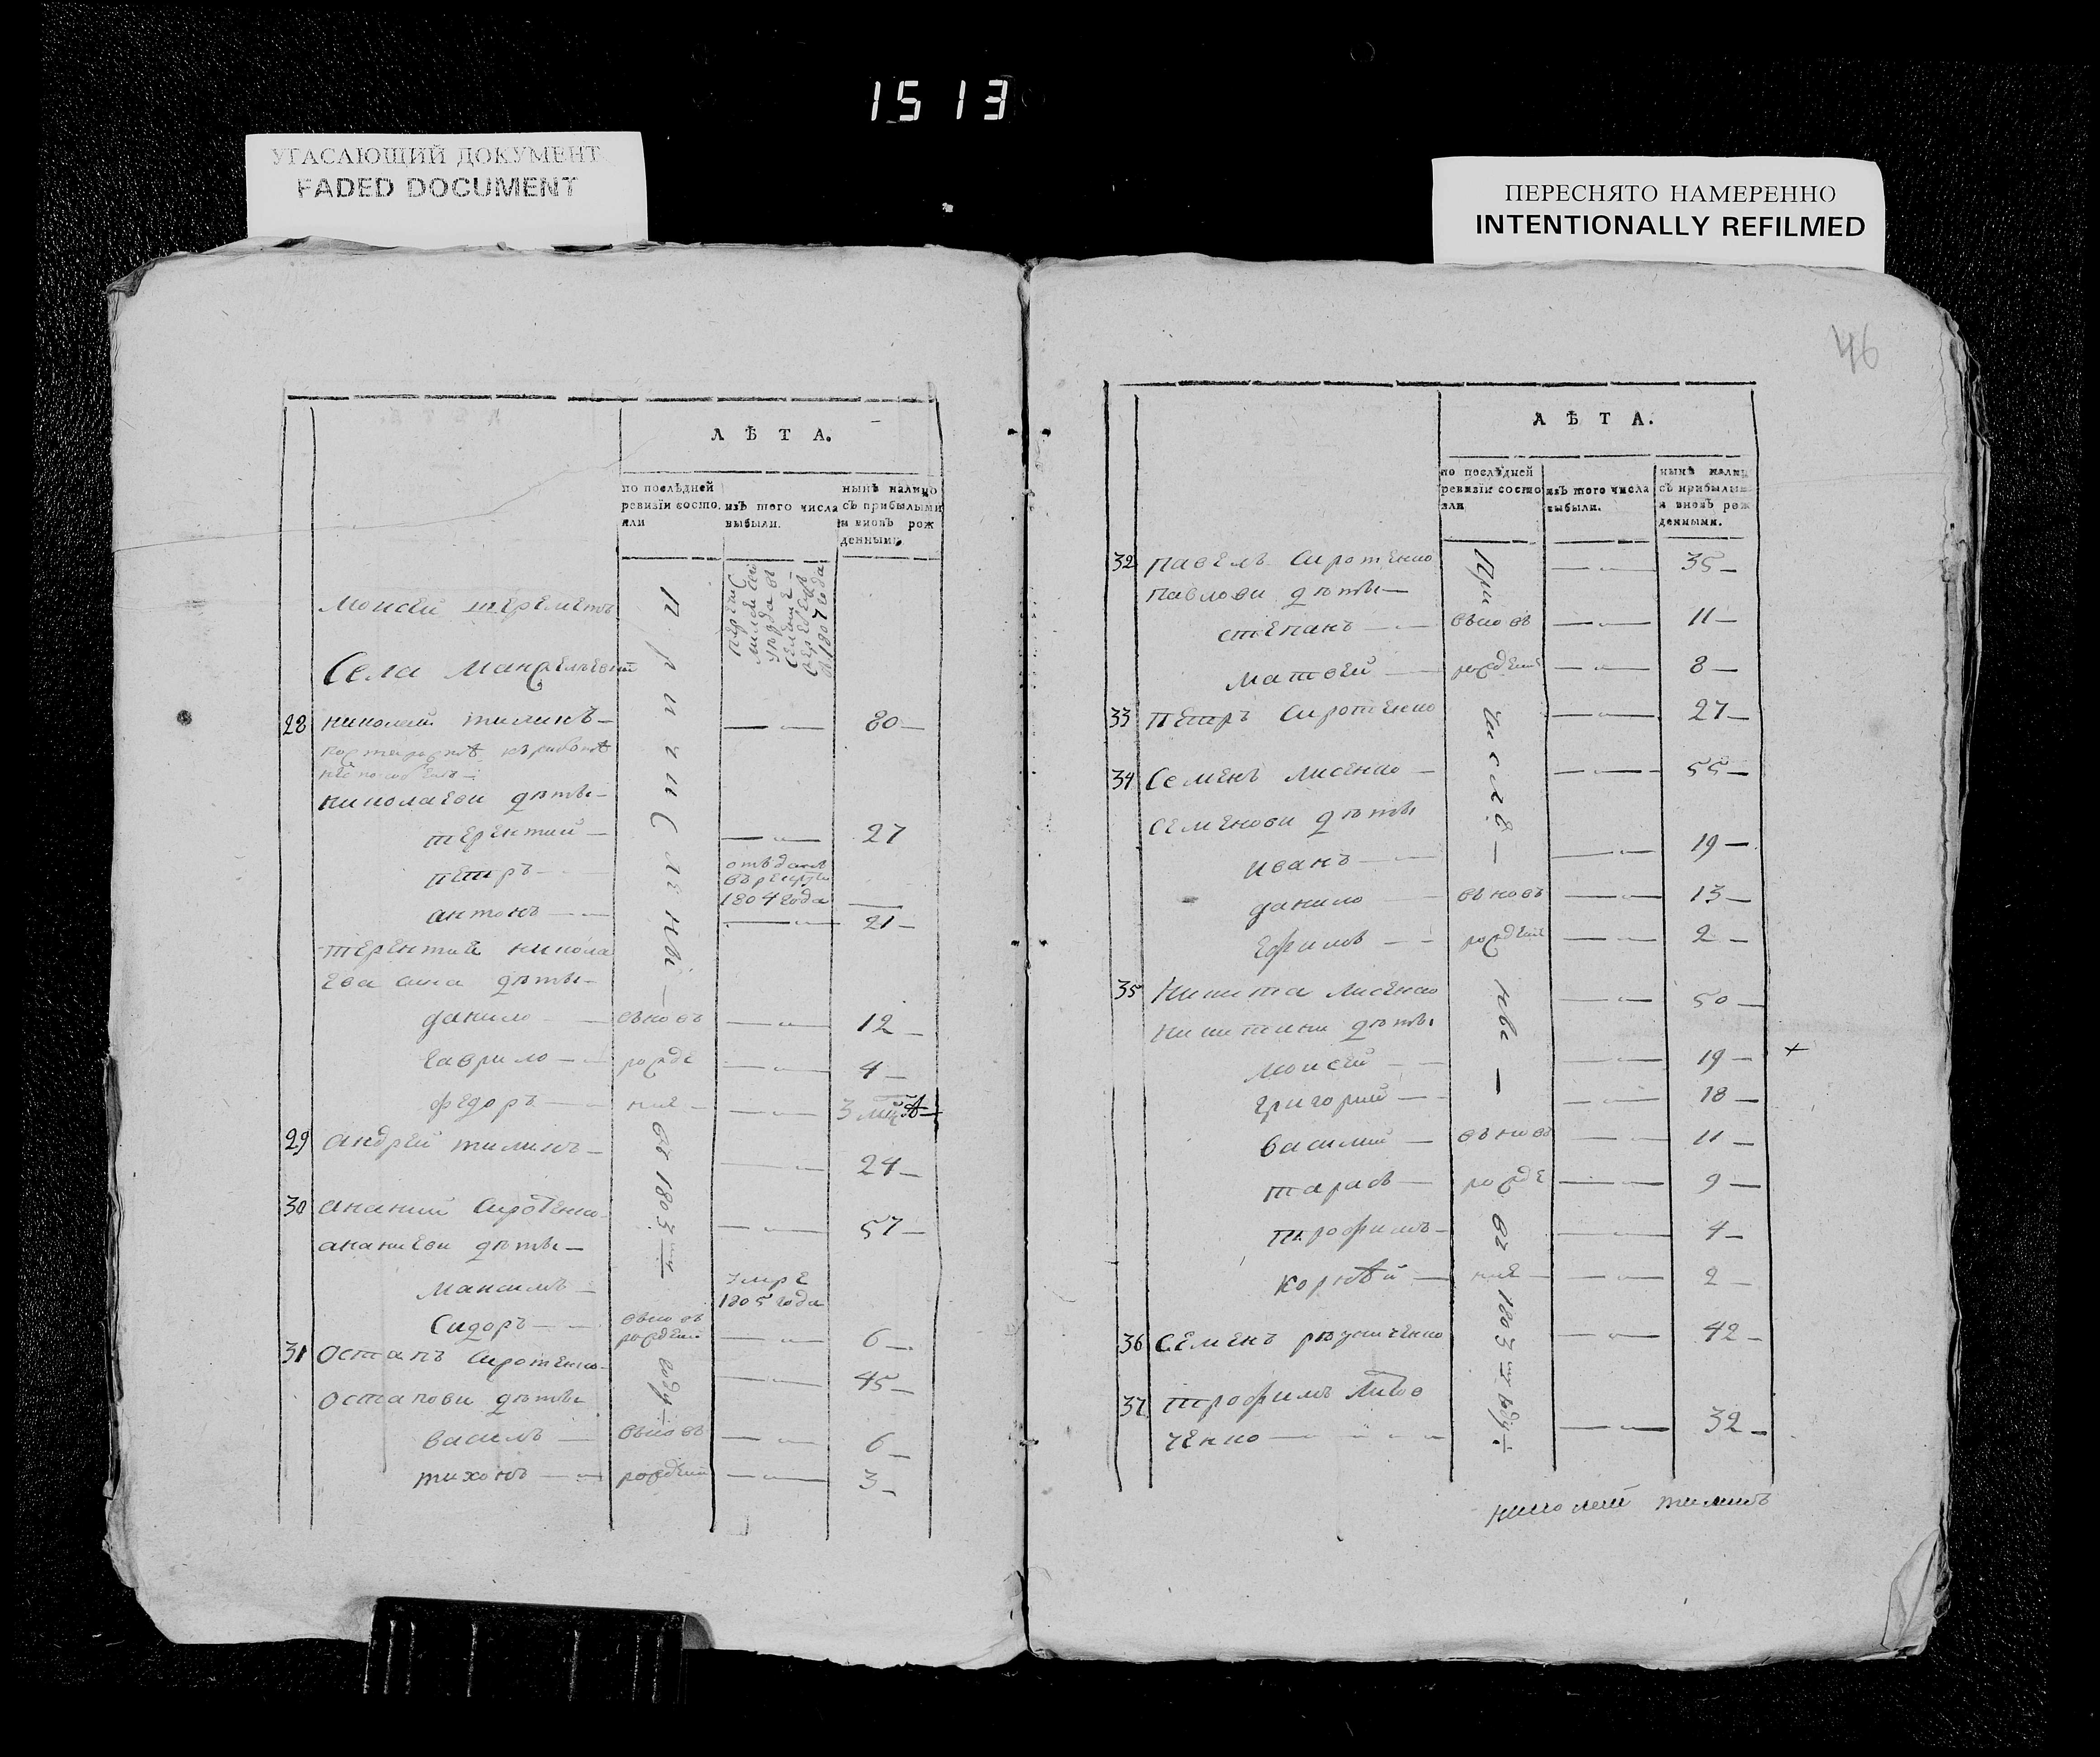 1513
УГАСАЮЩИЙ ДОКУМЕНТ
FADED DOCUMENT
ПЕРЕСНЯТО НАМЕРЕННО
INTENTIONALLY REFILMED
46
ЛѢТА.
по послѣдней ревизіи состояли
изъ того числа выбыли.
нынѣ налицо съ прибылыми и вновь рожденными.
моисей
Села
причислены въ 1803му году
28 николай тилинъ — 80
николаеви дѣты
терентий — 27
петръ — отъданъ въ рекруты 1804 года
антонъ — 21
терентия никола
ева сина дѣты
данило — вьновъ — 12
гаврило — рожде — 4
федоръ — ние — 3 мцѣ
29 андрей тилинъ — 24
30 ананий Сиротенко — 57
ананиеви дѣты
максимъ — умре 1805 года
Сидоръ — вьновъ рождений — 6
31 Остапъ Сиротенко — 45
Остапови дѣты
василъ — вьновъ — 6
тихонъ — рождений — 3
ЛѢТА.
по послѣдней ревизіи состояли
изъ того числа выбыли.
нынѣ налицо съ прибылыми и вновь рожденными.
Причислены въ 1803му году
32 павелъ Сиротенко — 35
павлови дѣты
степанъ — вьновъ — 11
матвей — рождение — 8
33 петръ Сиротенко — 27
34 Семенъ лисенко — 55
семенови дѣты
иванъ — 19
данило — вьновъ — 13
ефимъ — рождение — 2
35 Никита лисенко — 50
никитини дѣты
моисей — 19 +
григорий — 18
василий — вьновъ — 11
тарасъ — рожде — 9
трофимъ — 4
корнѣй — ние — 2
36 Семенъ — 42
37 трофимъ
ченко — 32
николай тилинъ